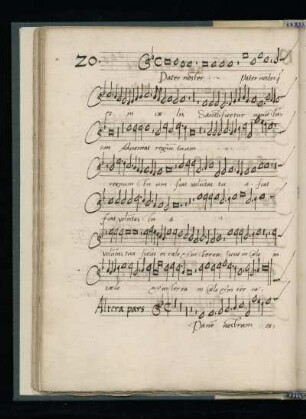 20.
Pater noster Pater noster q
es in cœ lis Sanctificetur nomen
um Adveniat regnum tuum
regnum tu um fiat voluntas tu a fiat
fiat voluntas tu a
voluntas tua sicut in cœlo et in terra sicut in cœlo
cœlo et in terra in cœlo et in ter ra.
Altera pars
Panem nostrum